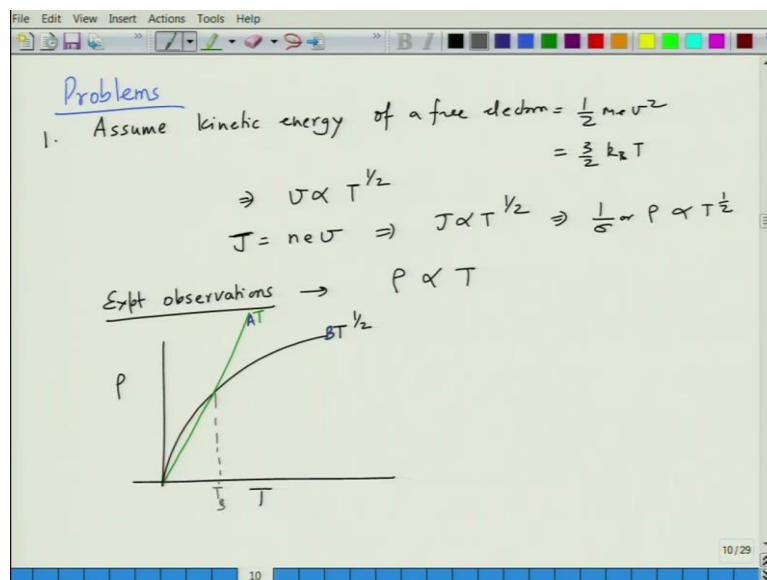 File Edit View Insert Actions Tools Help
B I
Problems
1. Assume kinetic energy of a free electron = 1/2 me v²
= 3/2 kB T
⇒ v ∝ T^1/2
J = nev ⇒ J ∝ T^1/2 ⇒ 1/σ or ρ ∝ T^1/2
Expt observations → ρ ∝ T
AT
BT^1/2
ρ
Ts T
10/29
10